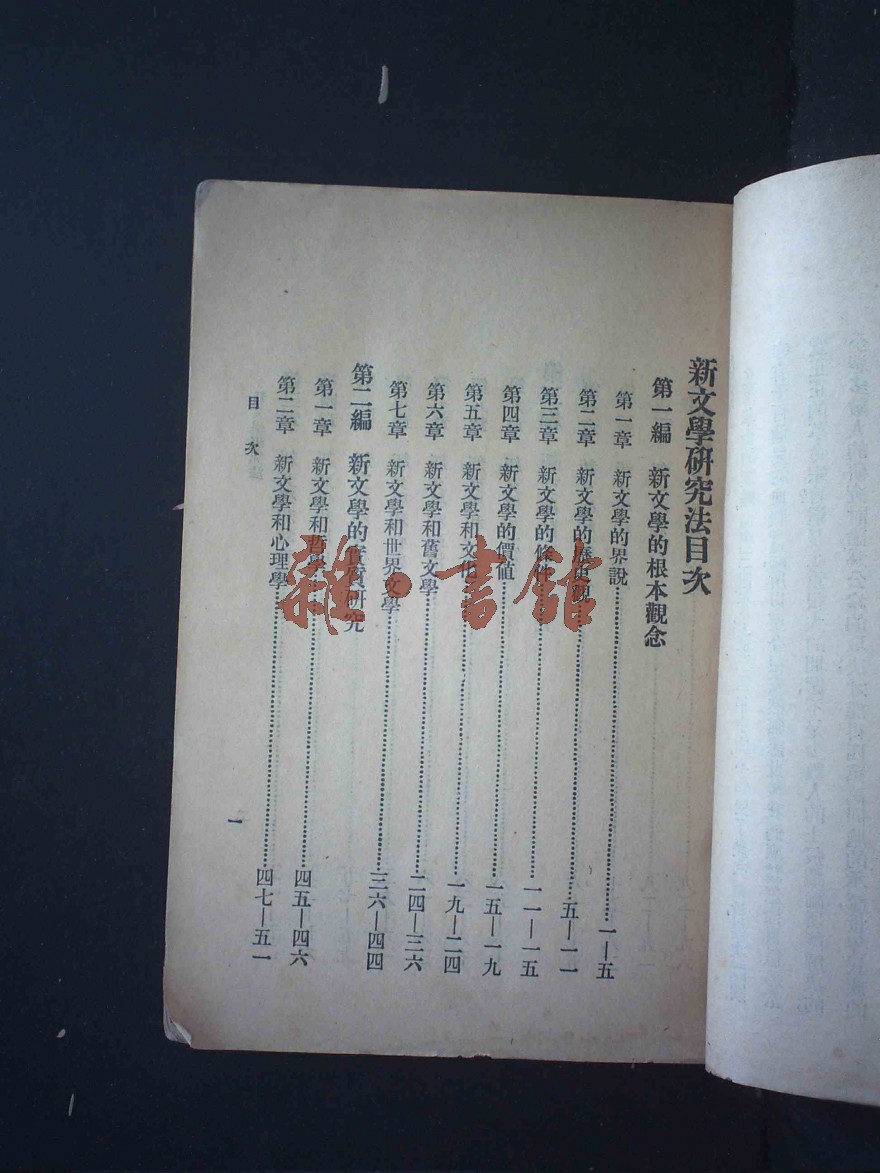 新文學研究法目次
第一編 新文學的根本觀念
第一章 新文學的界說……一—五
第二章 新文學的歷史觀……五—一一
第三章 新文學的條件……一一—一五
第四章 新文學的價値……一五—一九
第五章 新文學和文化……一九—二四
第六章 新文學和舊文學……二四—三六
第七章 新文學和世界文學……三六—四四
第二編 新文學的實質研究
第一章 新文學和哲學……四五—四六
第二章 新文學和心理學……四七—五一
目次
一
雜·書館